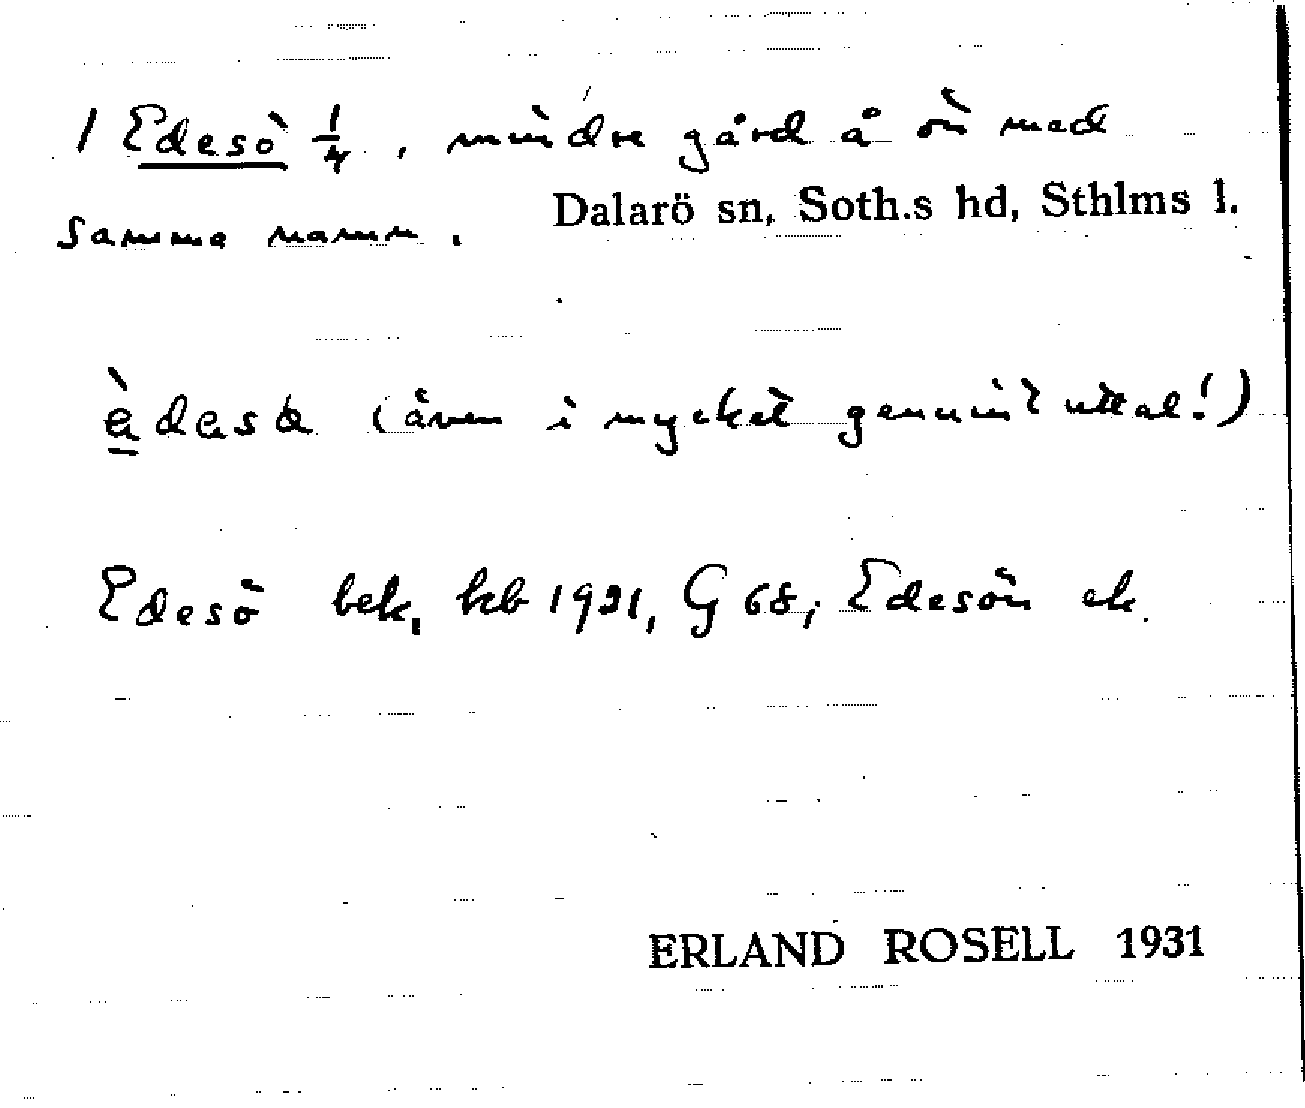 1 Edesö 1/4, mindre gård å ön med
Dalarö sn, Soth.s hd, Sthlms l.
samma namn.
(även i mycket genuint uttal!)
Edesö bek, kb 1921, G 68; Edesön ek.
ERLAND ROSELL 1931